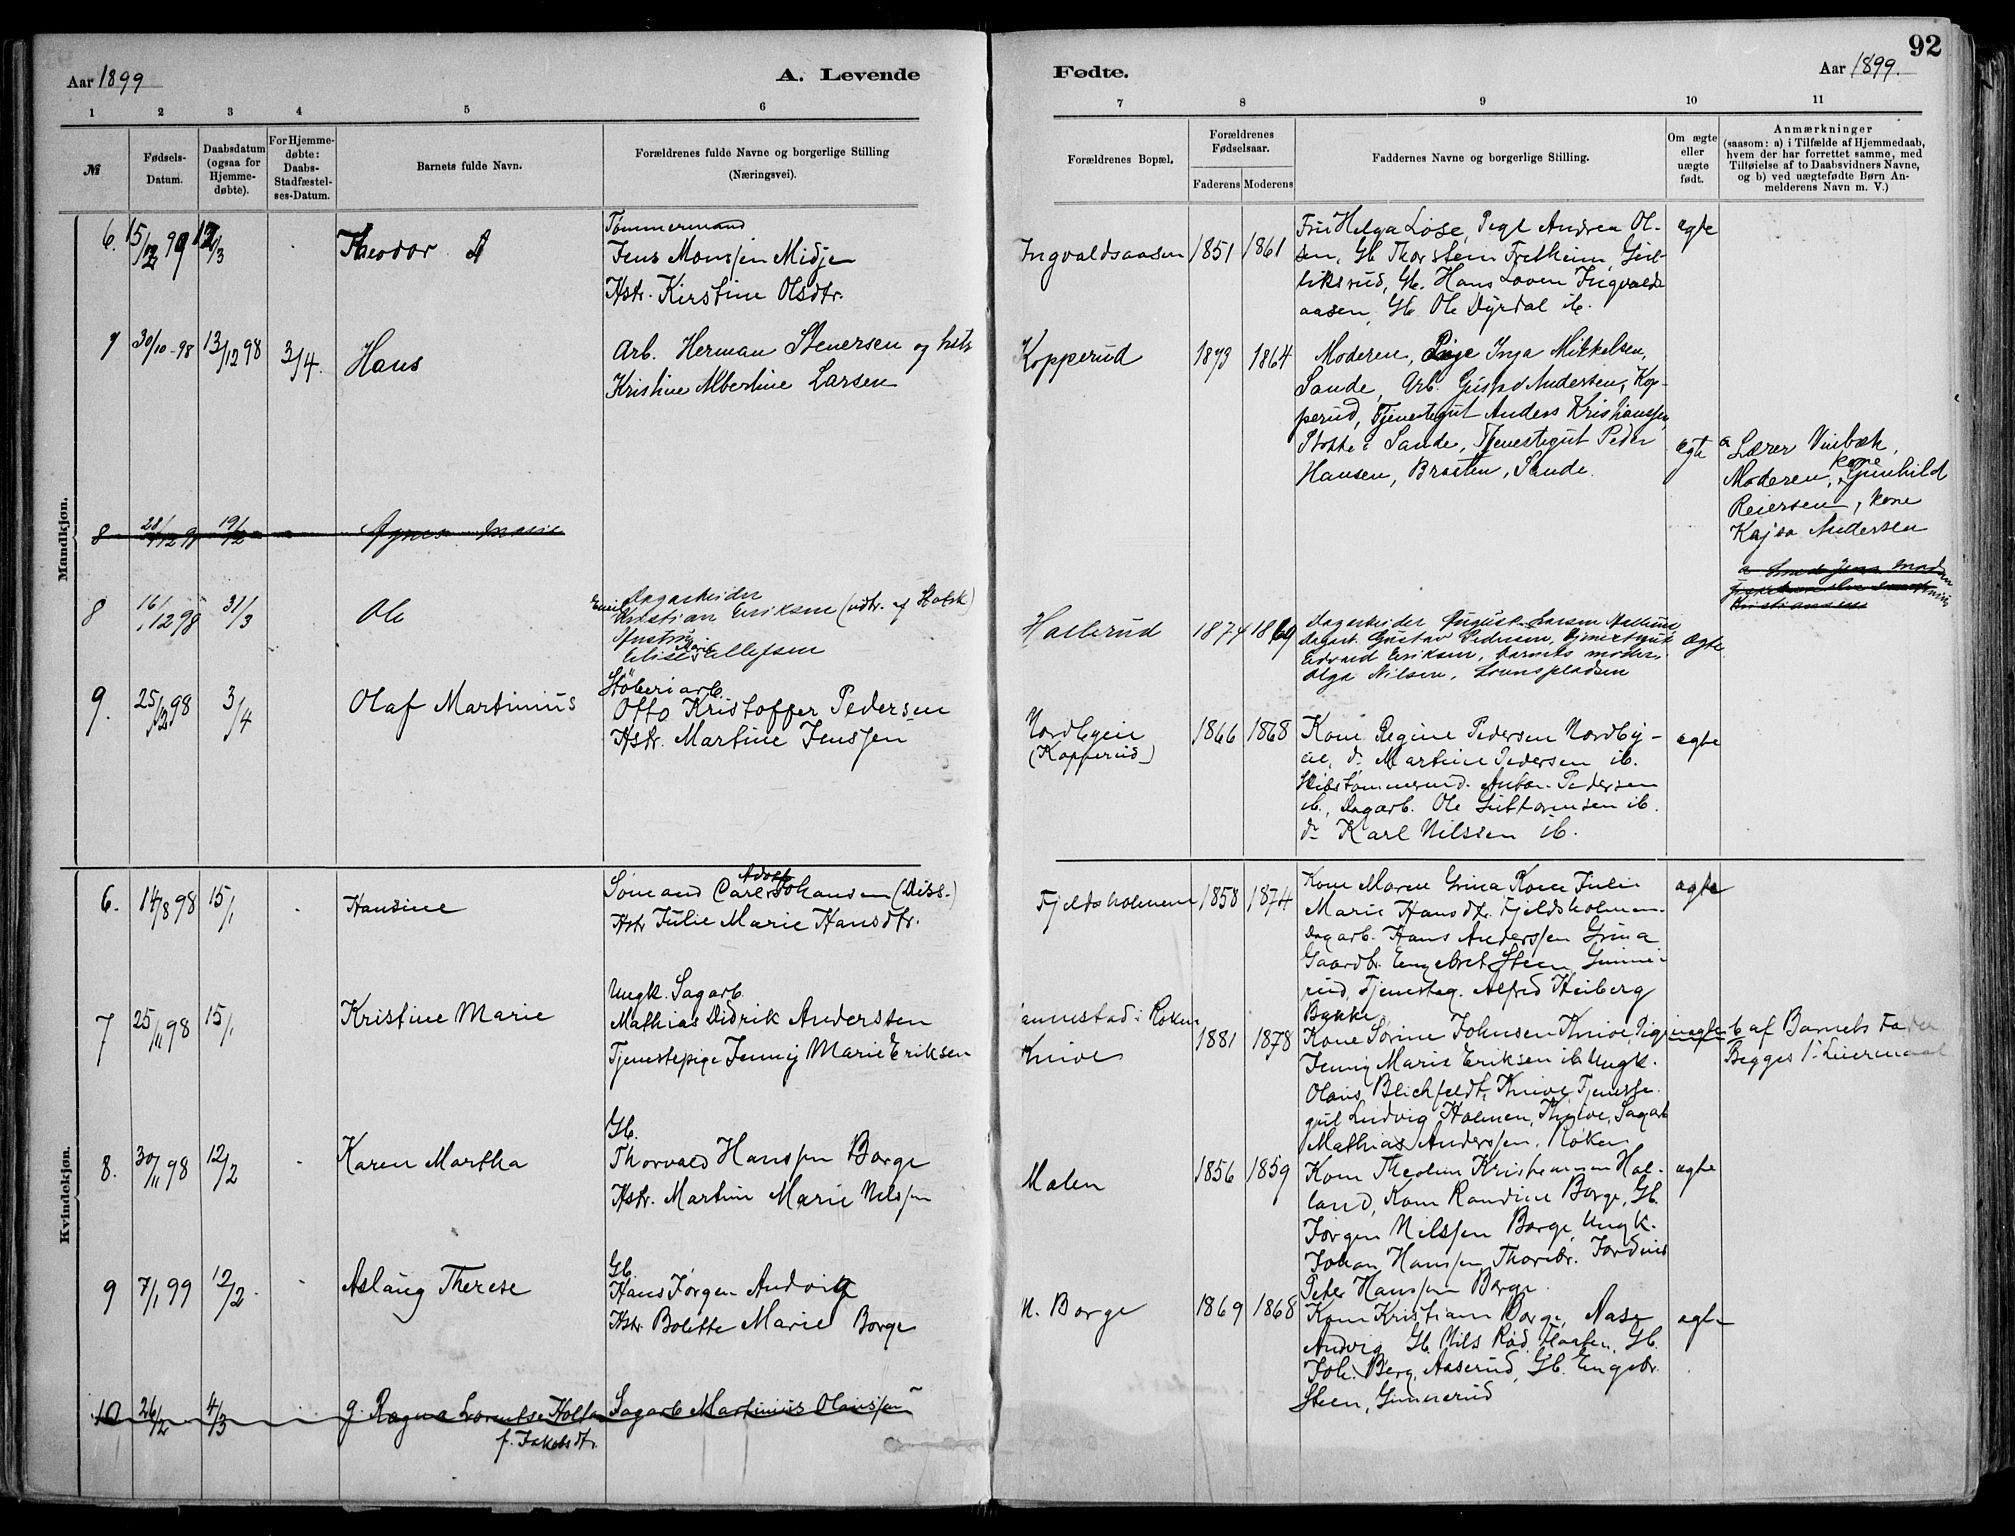 92
Aar 1899
A. Levende
Fødte.
Aar 1899.
1 2 3 4 5 6 7 8 9 10 11
№
Fødsels-Datum.
Daabsdatum (ogsaa for Hjemme-døbte).
For Hjemme-døbte: Daabs-Stadfæstel-ses-Datum.
Barnets fulde Navn.
Forældrenes fulde Navne og borgerlige Stilling
(Næringsvei).
Forældrenes Bopæl.
Forældrenes Fødselsaar.
Faderens Moderens
Faddernes Navne og borgerlige Stilling.
Om ægte eller uægte født.
Anmærkninger
(saasom: a) i Tilfælde af Hjemmedaab,
hvem der har forrettet samme, med
Tilføielse af to Daabsvidners Navne,
og b) ved uægtefødte Børn An-
melderens Navn m. V.)
Mandkjøn.
6. 15/12 98 12/3 Theodor
Tømmermand
Jens Monssen Midje
Hstr. Kirstine Olsdtr.
Ingvaldsaasen 1851 1861
Fru Helga Lose, Pige Andrea Ol-
sen, Gb. Thorstein Fretheim,
Gb. Hans Loven Ingvalds-
aasen, Gb. Ole Dyrdal ib.
ægte
7 30/10-98 13/12 98 3/4. Hans
Arb. Herman Stenersen og hstr.
Kristine Albertine Larsen
Kopperud 1873 1864
Moderen, Pige Inga Mikkelsen,
Sande, Arb. Gustav Andersen, Kop-
perud, Tjenestegut Anders Kristianssen,
i Sande, Tjenestegut Peder
Hansen, Braaten, Sande.
ægte
a Lærer Vinbæk,
Moderen, kone Gunhild
Reiersen, kone
Kajsa Andersen
8 28/12 98 19/2 Agnes Marie
8 16/12 98 31/3 Ole
Dagarbeider
Emil Kristian Eriksen (udtr. af Statsk)
Hustru
Elise Marie Ellefsen
Hallerud 1874 1869
Dagarbeider August Larsen Hallerud
Dagarb. Gustav Pedersen, Tjenestegut
Edvard Eriksen, barnets moder,
Olga Nilsen,
ægte
9. 25/12 98 3/4 Olaf Martinius
Støberiarb.
Otto Kristoffer Pedersen
Hstr. Martine Jenssen
Nordbyeie
(Kopperud)
1866 1868
Kone Regine Pedersen Nordby-
eie, do Martine Pedersen ib.
Skibstømmermd. Anton Pedersen
ib, Dagarb. Ole Guttormsen ib.
do Karl Nilssen ib.
ægte
Kvindekjøn.
6. 14/8 98 15/1 Hansine
Sømand Carl Adolf Johansen (Diss.)
Hstr Julie Marie Hansdtr.
Fjeldsholmene 1858 1874
Kone Maren Grina Kone Julie
Marie Hansdtr. Fjeldsholmen.
Dagarb. Hans Anderssen Grina
Gaardbr. Engebret Steen Gunne-
rud, Tjenesteg. Alfred Heiberg
Bakke
ægte
7 25/11 98 15/1 Kristine Marie
Ungk. Sagarb.
Mathias Didrik Andersten
Tjenestepige Jenny Marie Eriksen
i Røken
Knive
1881 1878
Kone Sorine Johnsen Knive, Pige
Jenny Marie Eriksen ib. Ungk.
Olaus Blichfeldt, Knive, Tjeneste-
gut Ludvig Holmen, Knive, Sagarb.
Mathias Anderssen, Røken
uægte
b af Barnets Fader
Begges 1ste Leiermaal
8. 30/11 98 12/2 Karen Martha
Gb.
Thorvald Hanssen Borge
Hstr. Martine Marie Nilssen
Malen 1856 1859
Kone Theoline Kristiansen Hal-
land, Kone Randine Borge, Gb.
Jørgen Nilssen Borge, Ungk.
Johan Hanssen
Peter Hanssen Borge.
ægte
9 7/1 99 12/2 Aslaug Therese
Gb
Hans Jørgen Andvig
Hstr. Bolette Marie Borge
N. Borge 1869 1868
Kone Kristiane Borge, Aase
Andvig, Gb. Nils Rød, Gb.
Joh. Berg, Aaserud, Gb. Engebr.
Steen, Gunnerud
ægte
10 26/2 4/3 g. Ragna Lorentse Holtan
f. Jakobsdtr.
Sagarb. Martinius Olaussen